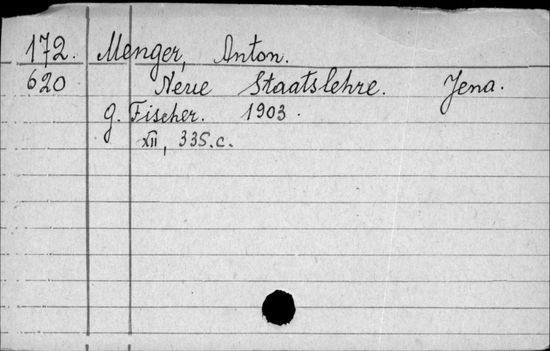 172. Menger, Anton.
620 Neue Staatslehre. Jena.
G. Fischer. 1903.
XII, 335.c.